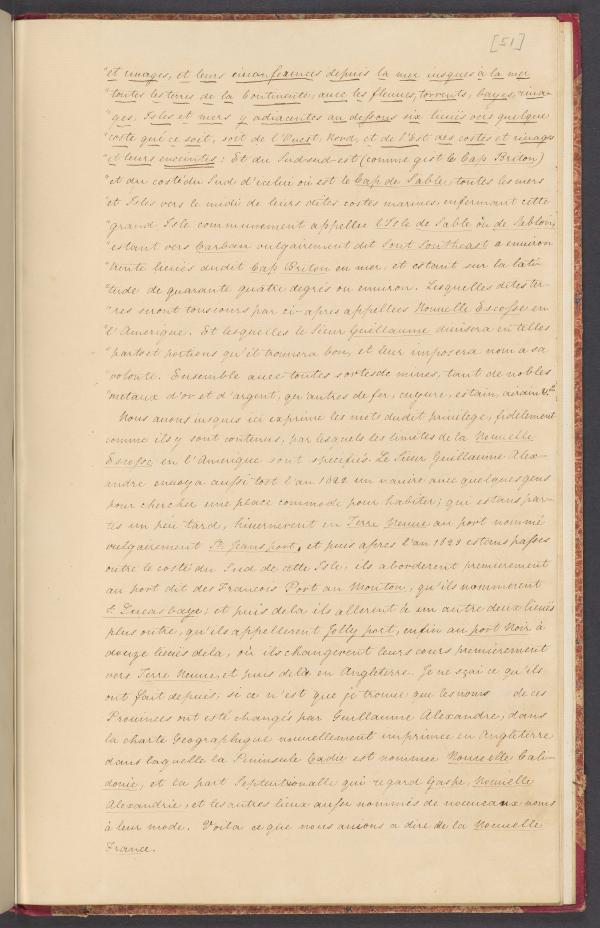 [51]
"et riuages, et leurs circonferences depuis la mer iusques à la mer
"toutes les terres de la Continente, auec les fleuues, torrents, bayes, riua-
"ges, Isles et mers y adiacentes au dessous six lieuës vers quelque
"coste qui ce soit, soit de l'Ouest, Nord, et de l'Est des costes et riuages
"et leurs enceintes: Et du Sudsud-est (comme gist le Cap Briton)
"et du costé du Sud d'icelui où est le Cap de Sable, toutes les mers
"et Isles vers le midi de leurs dites costes marines, enfermant cette
"grand Isle communement appellee l'Isle de Sable ou de Sablon,
"estant vers Carban vulgairement dit Sout Southeast a enuiron
"trente lieuës dudit Cap Briton en mer, et estant sur la lati-
"tude de quarante quatre degrés ou enuiron. Lesquelles dites ter-
"res seront tousiours par ci-apres appellees Nouuelle Escosse en
"l'Amerique. Et lesquelles le Sieur Guillaume diuisera en telles
"parts et portions qu'il trouuera bon, et leur imposera nom a sa
"volonté. Ensemble auec toutes sortes de mines, tant de nobles
"metaux d'or et d'argent, qu'autres de fer, cuyure, estain, airain &c.
Nous auons iusques ici exprimé les mots dudit priuilege, fidelement
comme ils y sont contenus, par lesquels les limites de la Nouuelle
Escosse en l'Amerique sont specifiés. Le Sieur Guillaume Alex-
andre enuoya aussi tost l'an 1622 un nauire auec quelques gens
pour chercher une place commode pour habiter; qui estans par-
tis un peu tard, hiuernerent en Terre Neuue au port nommé
vulgairement St. Jeans port, et puis apres l'an 1623 estans passés
outre le costé du Sud de cette Isle, ils aborderent premierement
au port dit des Francois Port au Mouton, qu'ils nommerent
St Lucas baye; et puis de la ils allerent à un autre deux lieuës
plus outre, qu'ils appellerent Jolly port, enfin au port Noir à
douze lieuës de la, où ils changerent leurs cours premierement
vers Terre Neuue, et puis delà en Angleterre. Je ne sçai ce qu'ils
ont fait depuis; si ce n'est que je trouue que les noms de ces
Prouinces ont esté changés par Guillaume Alexandre, dans
la charte Geographique nouuellement imprimee en Angleterre
dans laquelle la Peninsule Cadie est nommee Nouuelle Cali-
donie, et la part Septentrionalle qui regard Gaspe, Nouuelle
Alexandrie, et les autres lieux aussi nommés de nouueaux noms
à leur mode. Voila ce que nous auions a dire de la Nouuelle
France.